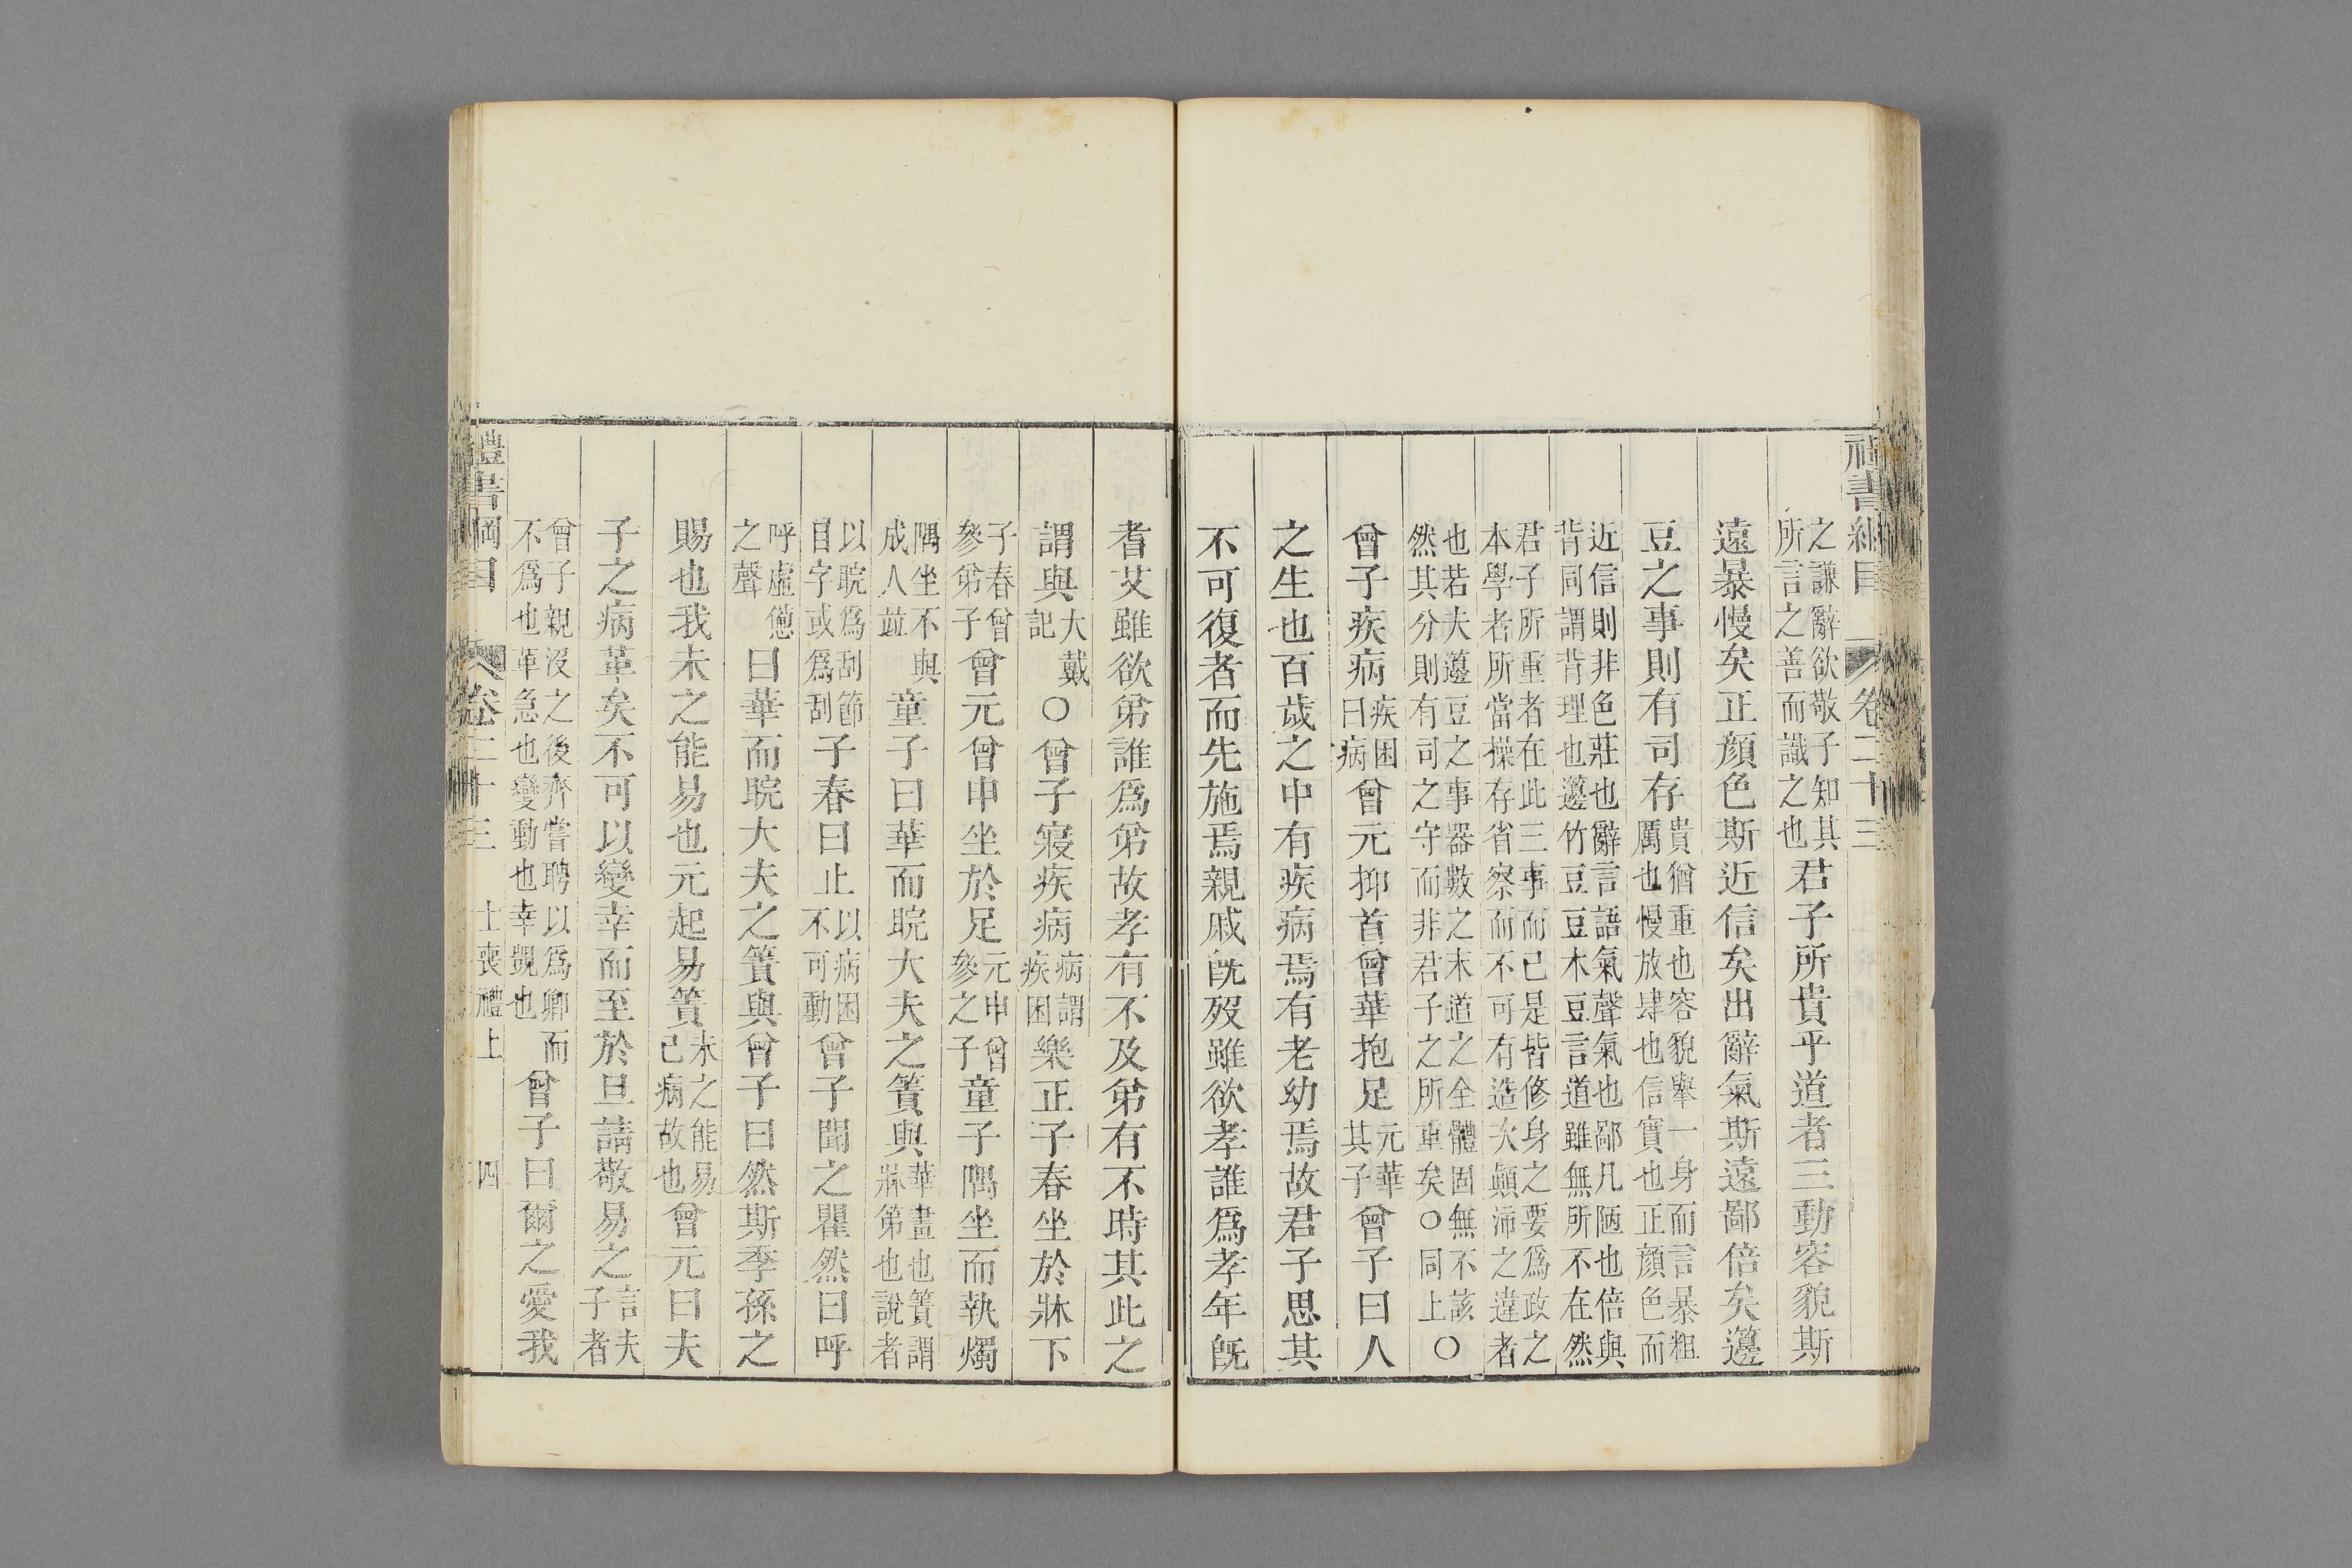 禮書綱目 卷二十三
之謙辭欲敬子知其所言之善而識之也君子所貴乎道者三動容貌斯
遠暴慢矣正顏色斯近信矣出辭氣斯遠鄙倍矣籩
豆之事則有司存貴猶重也容貌舉一身而言暴粗厲也慢放肆也信實也正顏色而
近信則非色莊也辭言語氣聲氣也鄙凡陋也倍與背同謂背理也籩竹豆豆木豆言道雖無所不在然
君子所重者在此三事而已是皆修身之要爲政之本學者所當操存省察而不可有造次顛沛之違者
也若夫籩豆之事器數之末道之全體固無不該然其分則有司之守而非君子之所重矣○同上○
曾子疾病疾困曰病曾元抑首曾華抱足元華其子曾子曰人
之生也百歲之中有疾病焉有老幼焉故君子思其
不可復者而先施焉親戚旣歿雖欲孝誰爲孝年旣
耆艾雖欲弟誰爲弟故孝有不及弟有不時其此之
謂與大戴記○曾子寢疾病病謂疾困樂正子春坐於牀下
子春曾參弟子曾元曾申坐於足元申曾參之子童子隅坐而執燭
隅坐不與成人竝童子曰華而睆大夫之簀與華畫也簀謂牀笫也說者
以睆爲刮節目字或爲刮子春曰止以病困不可動曾子聞之瞿然曰呼
呼虛憊之聲曰華而睆大夫之簀與曾子曰然斯季孫之
賜也我未之能易也元起易簀未之能易已病故也曾元曰夫
子之病革矣不可以變幸而至於旦請敬易之言夫子者
曾子親沒之後齊嘗聘以爲卿而不爲也革急也變動也幸覬也曾子曰爾之愛我
禮書綱目 卷二十三 士喪禮上 四